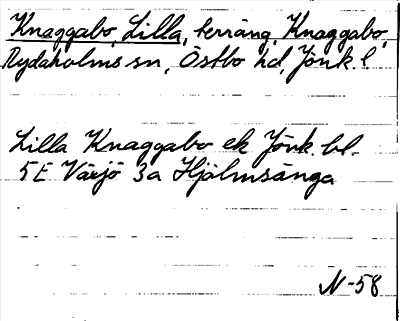 Knaggabo, Lilla, terräng, Knaggabo,
Rydaholms sn, Östbo hd, Jönk. l
Lilla Knaggabo ek Jönk. bl.
5E Växjö 3a Hjälmsänga
N-58